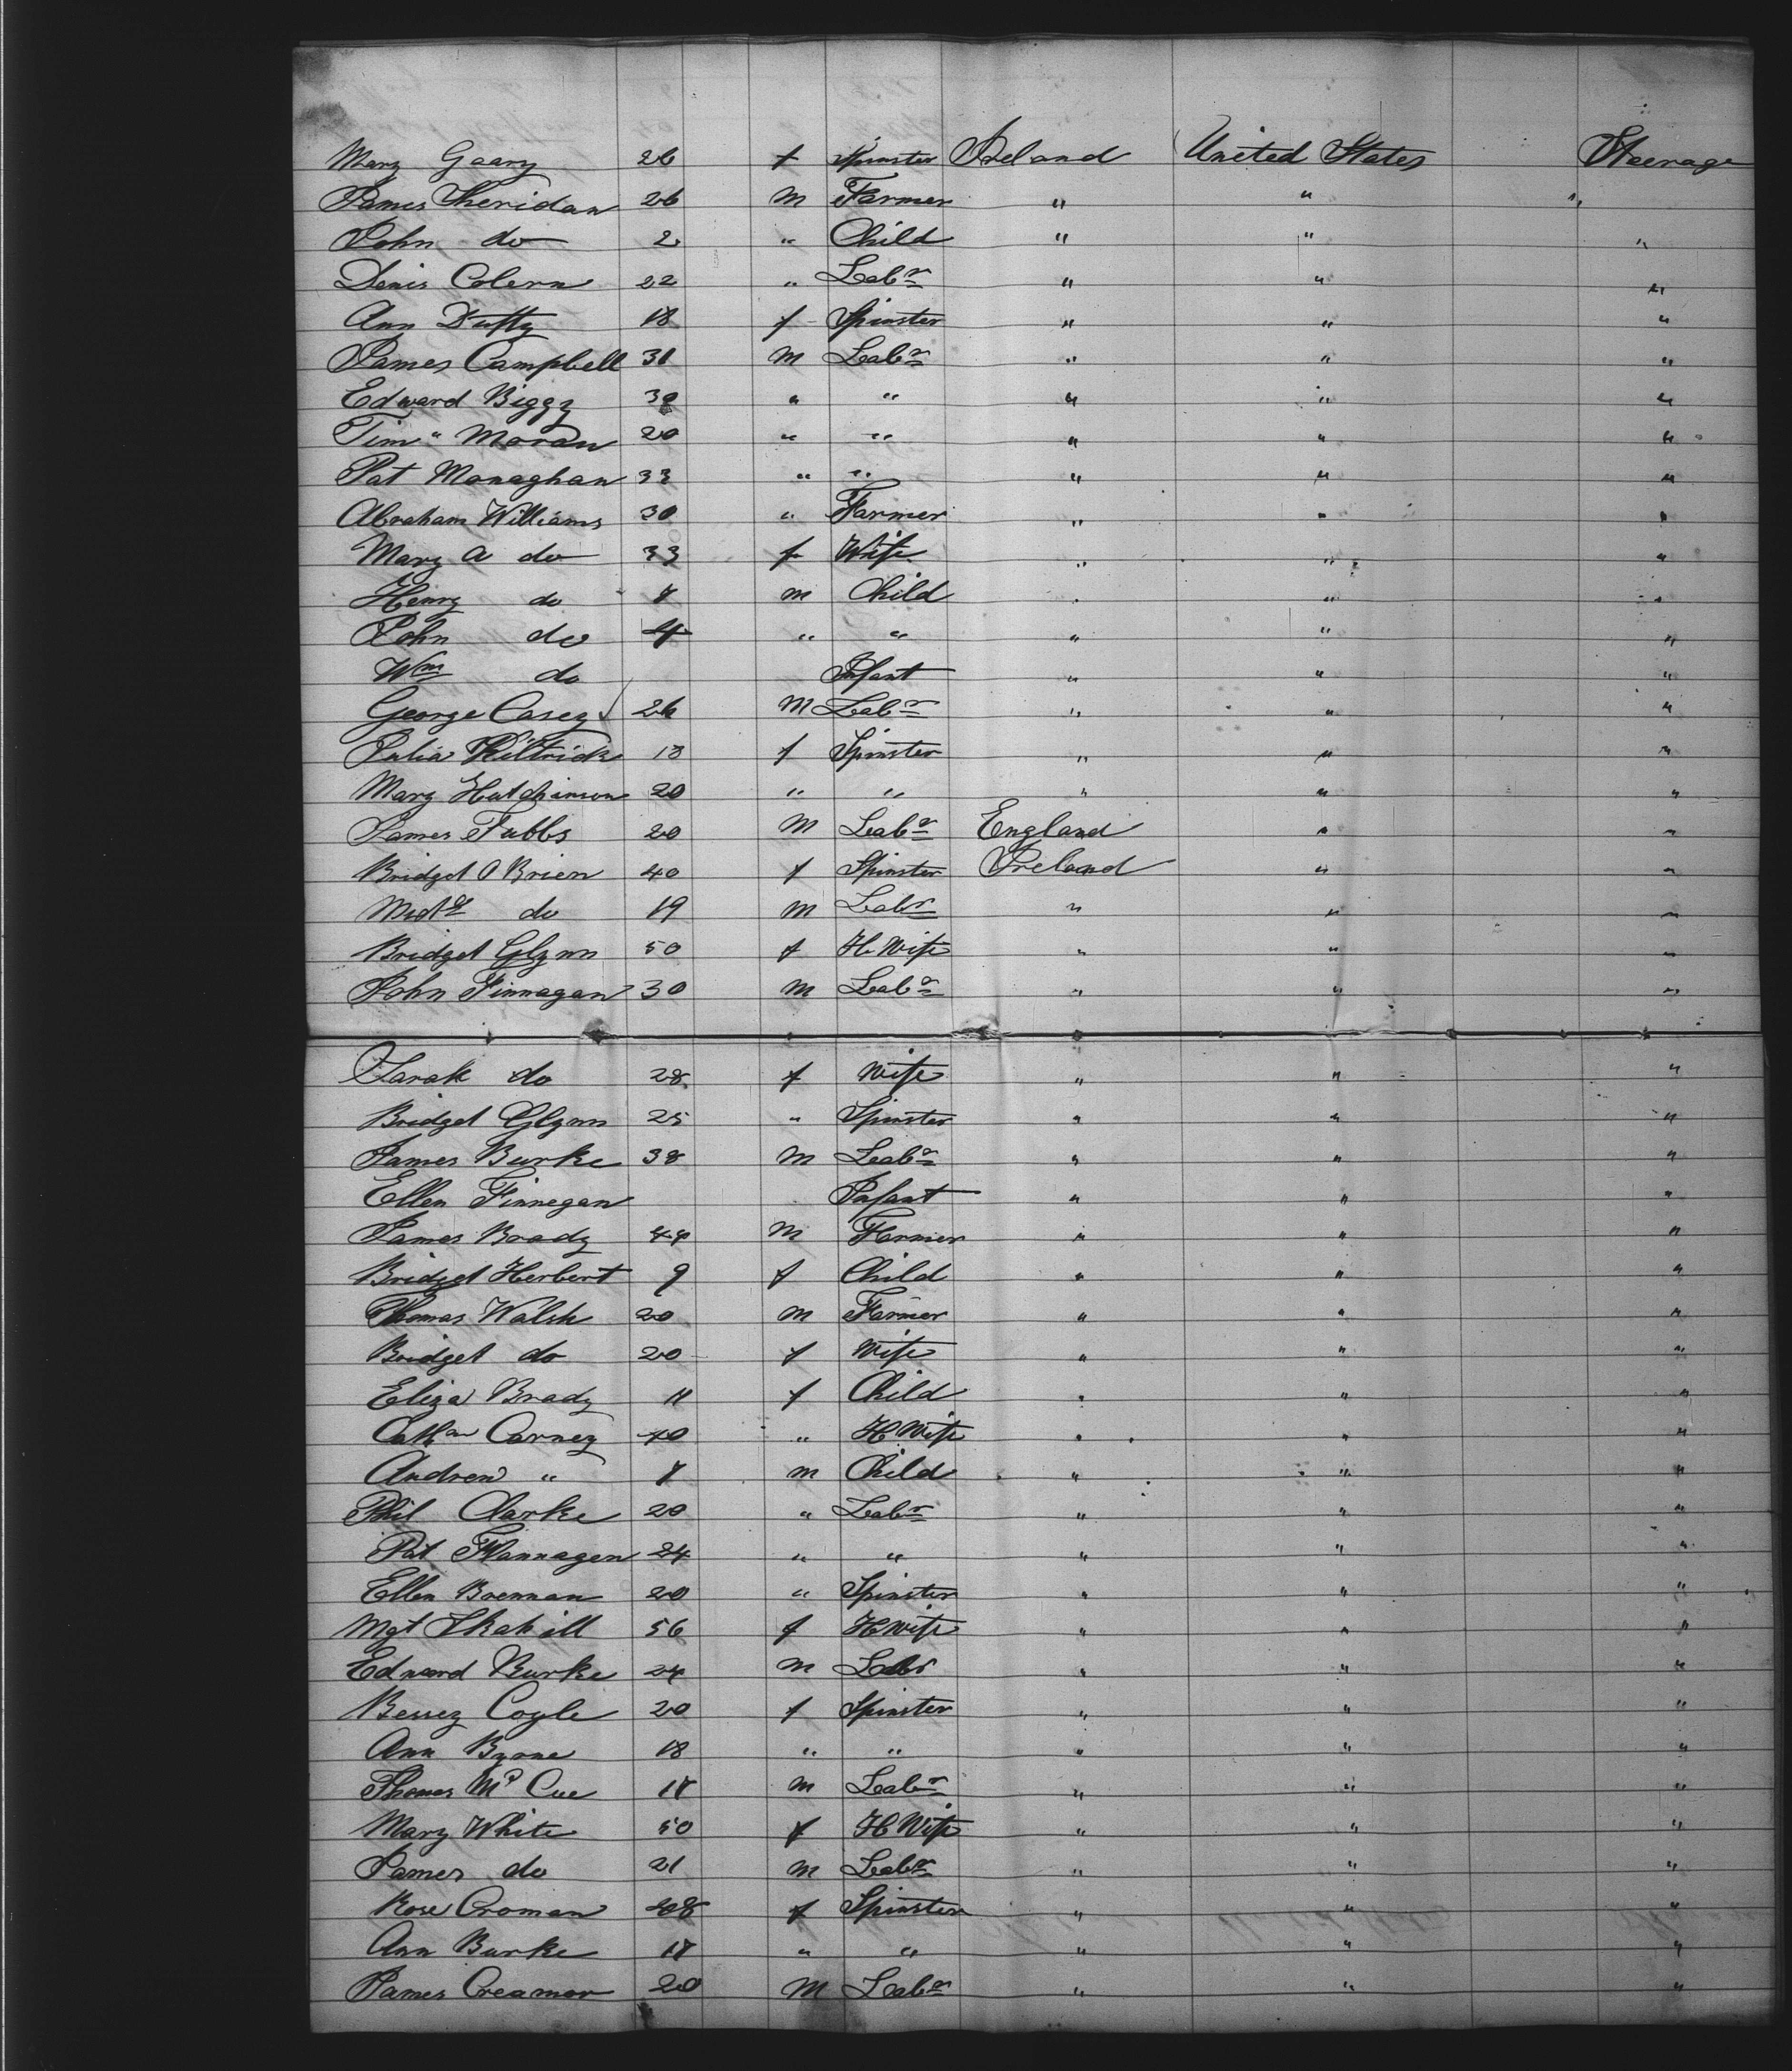 Mary Geary 26 f Spinster Ireland United States Steerage
James Sheridan 26 m Farmer " " "
John do 2 " Child " " "
Denis Colern 22 " Labr " " "
Ann Duffy 18 f Spinster " " "
James Campbell 31 m Labr " " "
Edward Biggy 30 " " " " "
Tim " Moran 20 " " " " "
Pat Monaghan 33 " " " " "
Abraham Williams 30 " Farmer " " "
Mary A do 33 f Wife " " "
Henry do 8 m Child " " "
John do 4 " " " " "
Wm do Infant " " "
George Casey 26 M Labr " " "
Julia Kiltrick 18 f Spinster " " "
Mary Hutchinson 20 " " " " "
James Tubbs 20 M Labr England " "
Bridget O Brien 40 f Spinster Ireland " "
do 19 m Labr " " "
Bridget Glynn 50 f H Wife " " "
John Finnagan 30 m Labr " " "
Sarah do 28 f Wife " " "
Bridget Glynn 25 " Spinster " " "
James Burke 38 M Labr " " "
Ellen Finnegan Infant " " "
James Brady 44 M Farmer " " "
Bridget Herbert 9 f Child " " "
Thomas Walsh 20 m Farmer " " "
Bridget do 20 f Wife " " "
Eliza Brady 11 f Child " " "
Cathn Carney 40 " H Wife " " "
Andrew " 8 m Child " " "
Phil Clarke 20 " Labr " " "
Pat Flannagen 24 " " " " "
Ellen Brennan 20 " Spinster " " "
Mgt Skahill 56 f H Wife " " "
Edward Burke 24 m Labr " " "
Bessey Coyle 20 f Spinster " " "
Ann Byrne 18 " " " " "
Thomas Mc Cue 18 m Labr " " "
Mary White 50 f H Wife " " "
James do 21 m Labr " " "
Rose Croman 48 f Spinster " " "
Ann Burke 18 " " " " "
James Creamor 20 M Labr " " "